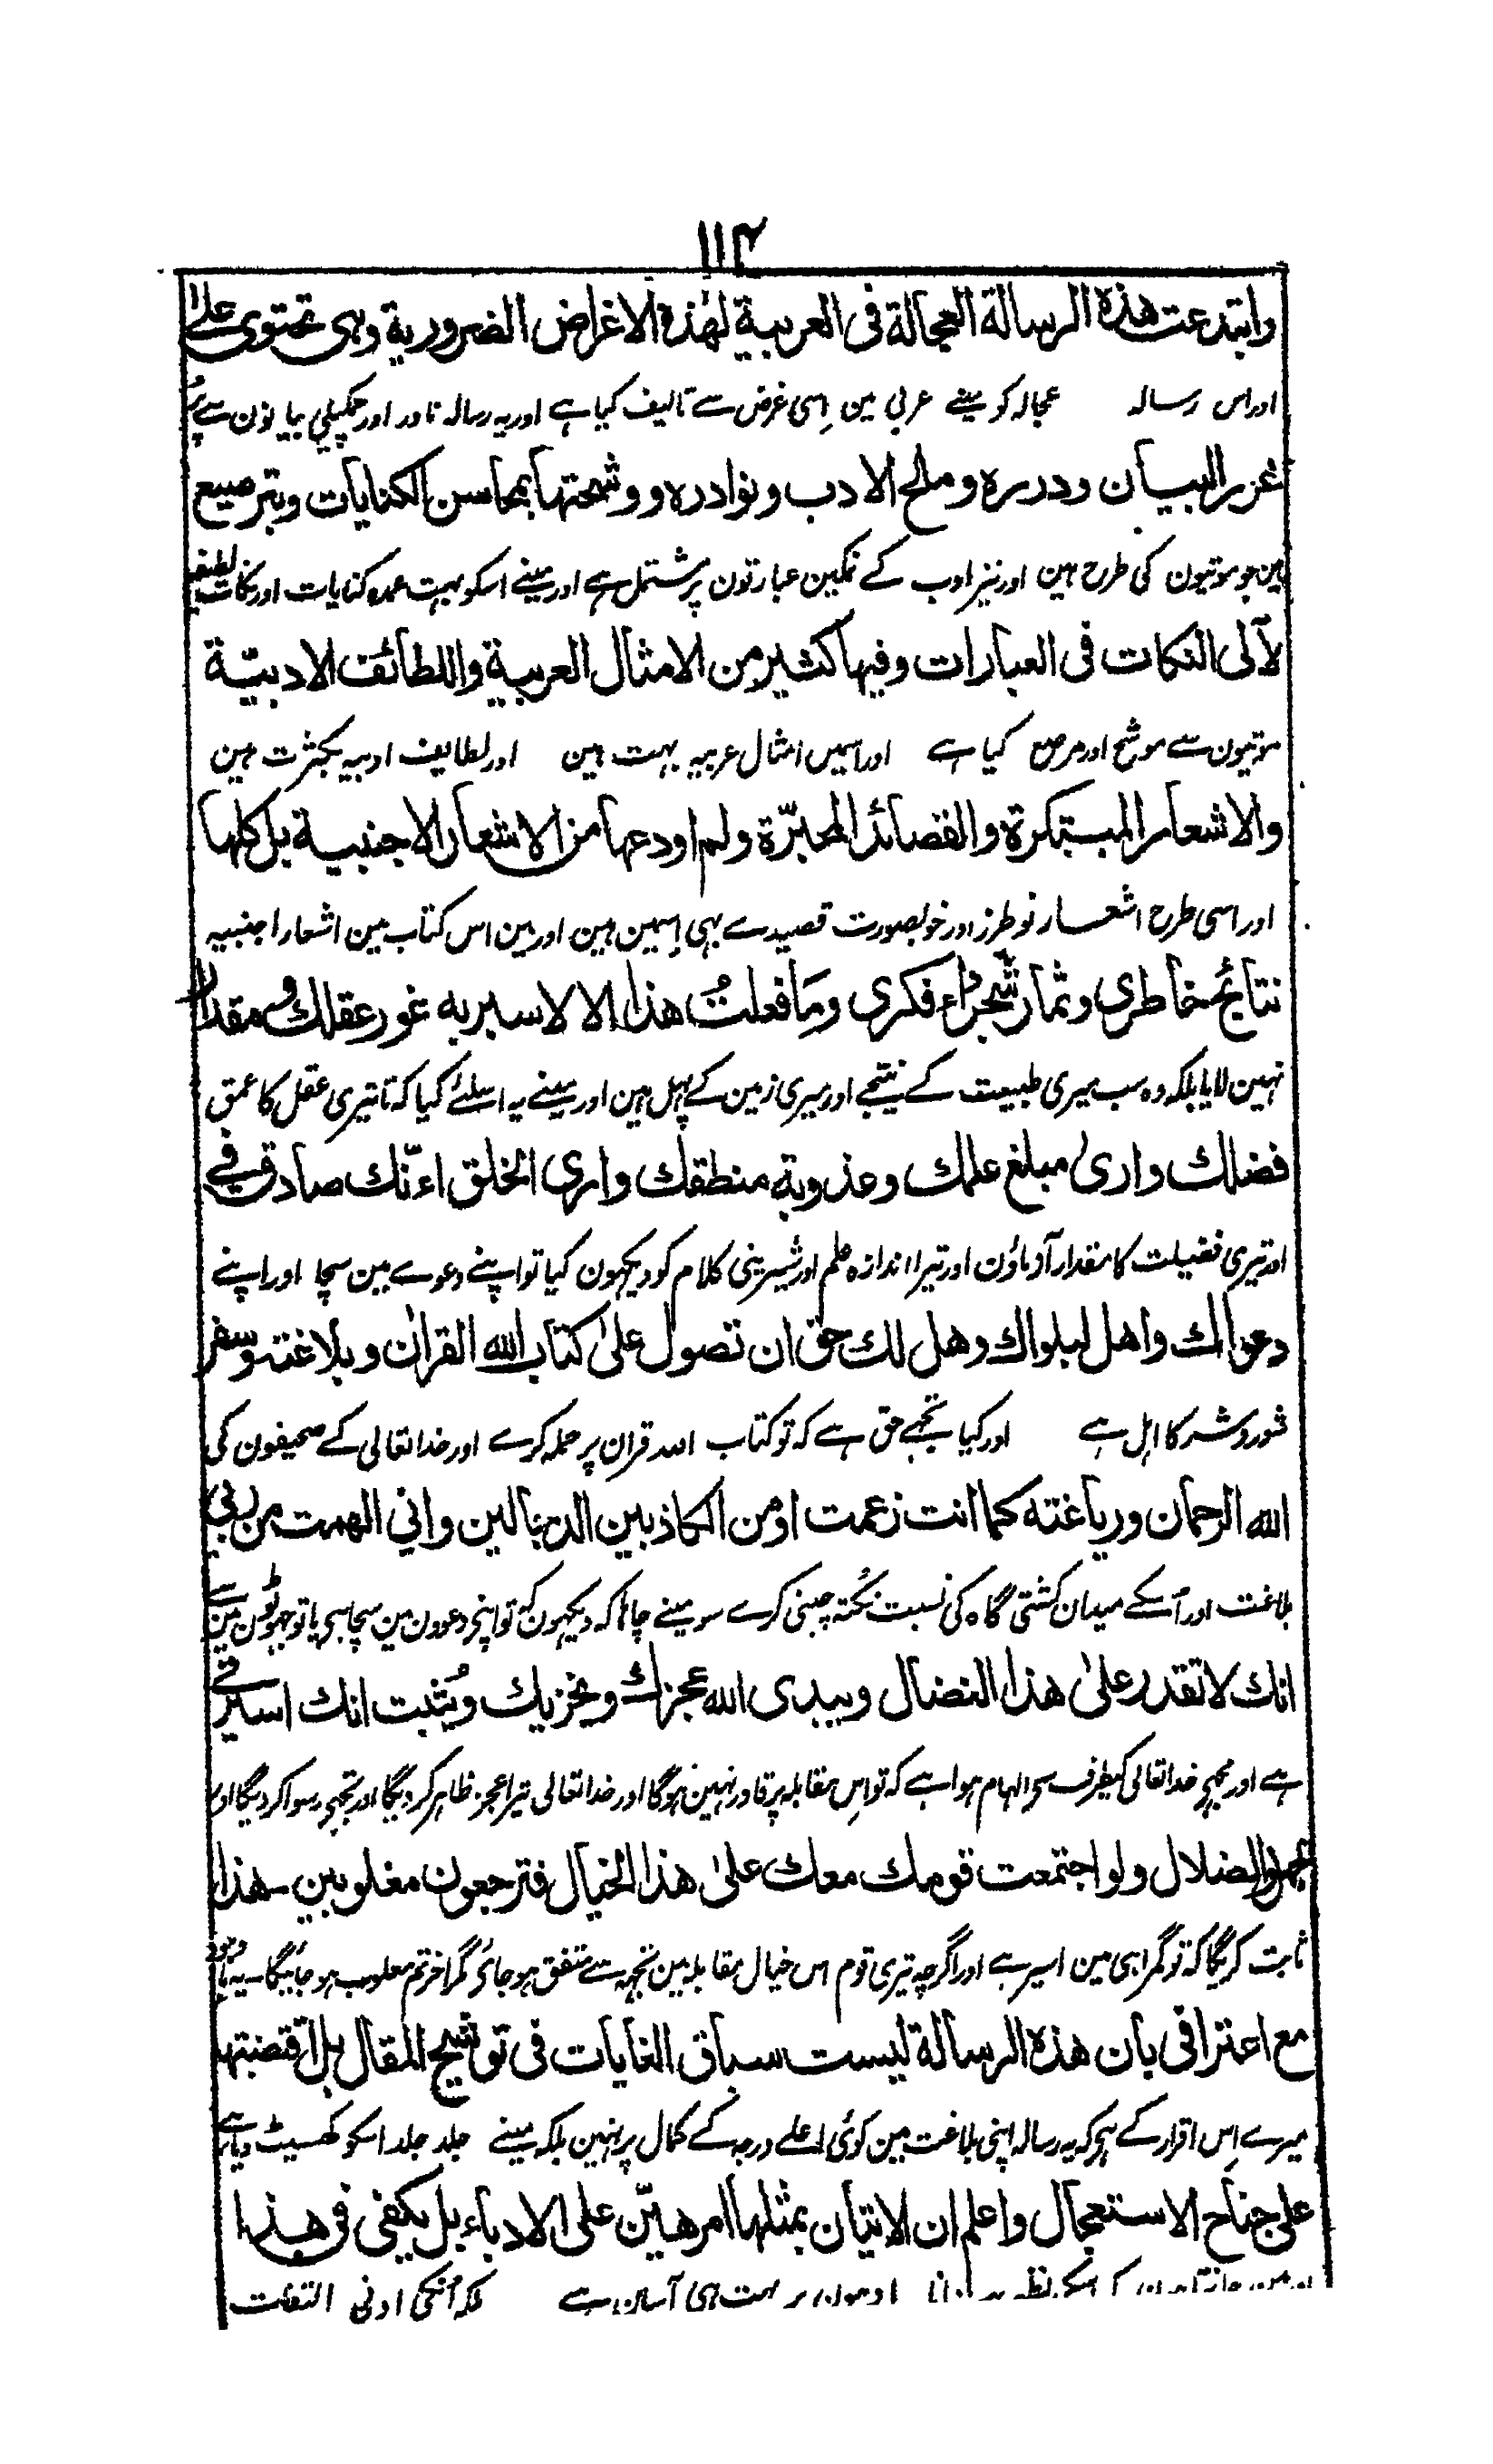 ١١٢
وابتدعت هذه الرسالة العجالة فى العربية لهذه الاغراض الضرورية وهى تحتوى على
اور اس رسالہ عجالہ کو مینے عربی مین اِسی غرض سے تالیف کیا ہے اور یہ رسالہ نادر اور چمکیلے بیانون سے پُر
غرر البيان ودرره وملح الادب ونوادره ووشحتها بمحاسن الكنايات وبترصيع
ہین جو موتیون کی طرح ہین اور نیز ادب کے نمکین عبارتون پر مشتمل ہے اور مینے اسکو بہت عمدہ کنایات اور نکات لطیفہ
لآلى النكات فى العبارات وفيها كثير من الامثال العربية واللطائف الادبيّة
موتیون سے موشح اور مرصع کیا ہے اور اسمیں امثال عربیہ بہت ہین اور لطایف ادبیہ بکثرت ہین
والاشعار المبتكرة والقصائد المحبّرة ولم اودعها من الاشعار الاجنبية بل كلها
اور اسی طرح اشعار نو طرز اور خوبصورت قصیدے بہی اِسمین ہین اور مین اس کتاب مین اشعار اجنبیہ
نتائج خاطرى وثمار شجراء فكرى ومَا فعلتُ هذا الا لاسبر به غور عقلك ومقدار
نہین لایا بلکہ وہ سب میری طبیعت کے نتیجے اور میری زمین کے پہل ہین اور مینے یہ اسلئے کیا کہ تا تیری عقل کا عمق
فضلك وارى مبلغ علمك وعذوبة منطقك وارى الخلق اءنّك صادق في
اور تیری فضیلت کا مقدار آزماؤن اور تیرا اندازہ علم اور شیرینی کلام کو دیکہون کیا تو اپنے دعوے مین سچا اور اپنے
دعواك واهل لبلواك وهل لك حق ان تصول علىٰ كتاب الله القرآن وبلاغته وسفر
شور و شر کا اہل ہے اور کیا تجہے حق ہے کہ تو کتاب اللہ قران پر حملہ کرے اور خدا تعالی کے صحیفون کی
الله الرحمان ورياغته كما انت زعمت او من الكاذبين الدجالين واني الهمت من ربي
بلاغت اور اُسکے میدان کشتی گاہ کی نسبت نکتہ چینی کرے سو مینے چاہا کہ دیکہون کہ تو اپنے دعوون مین سچا ہی یا تو جہوٹون مین سے
انك لا تقدر علىٰ هذا النضال ويبدى الله عجزك ويخزيك ويُثبت انك اسير في
ہے اور مجہی خدا تعالی کیطرف سی الہام ہوا ہے کہ تو اِس مقابلہ پر قادر نہین ہوگا اور خدا تعالی تیرا عجز ظاہر کر دیگا اور تجہی رسوا کر دیگا اور
الجهل والضلال ولو اجتمعت قومك معك علىٰ هذا الخيال فترجعون مغلوبين هذا
ثابت کریگا کہ تو گمراہی مین اسیر ہے اور اگرچہ تیری قوم اس خیال مقابلہ مین تجہہ سے متفق ہو جائے مگر اخر تم مغلوب ہو جائیگا یہ باوجود
مع اعترافى بان هذه الرسالة ليست سباق الغايات فى توشيح المقال بل اقتضبتها
میرے اِس اقرار کے ہے کہ یہ رسالہ اپنی بلاغت مین کوئی اعلے درجہ کے کمال پر نہین بلکہ مینے جلد جلد اسکو گھسیٹ دیا ہے
على جناح الاستعجال واعلم ان الاتيان بمثلها امر هيّن على الادباء بل يكفى فى هذا
ادیبون پر بہت ہی آسان ہے بلکہ اُنکی ادنی التفات